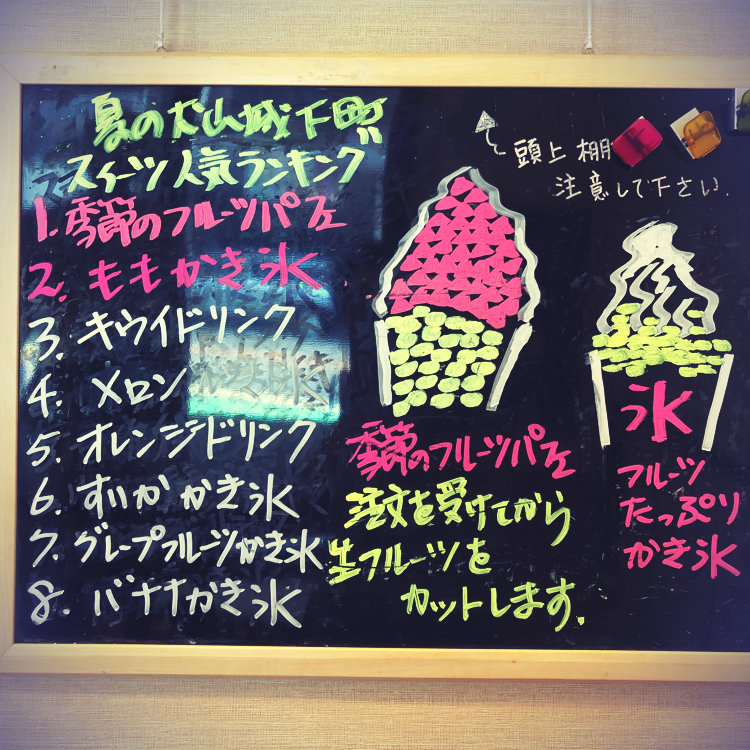 夏の犬山城下町
スイーツ人気ランキング
1. 季節のフルーツパフェ
2. ももかき氷
3. キウイドリンク
4. メロン
5. オレンジドリンク
6. すいかかき氷
7. グレープフルーツかき氷
8. バナナかき氷
頭上 棚
注意して下さい.
季節のフルーツパフェ
注文を受けてから
生フルーツを
カットします.
氷
フルーツ
たっぷり
かき氷